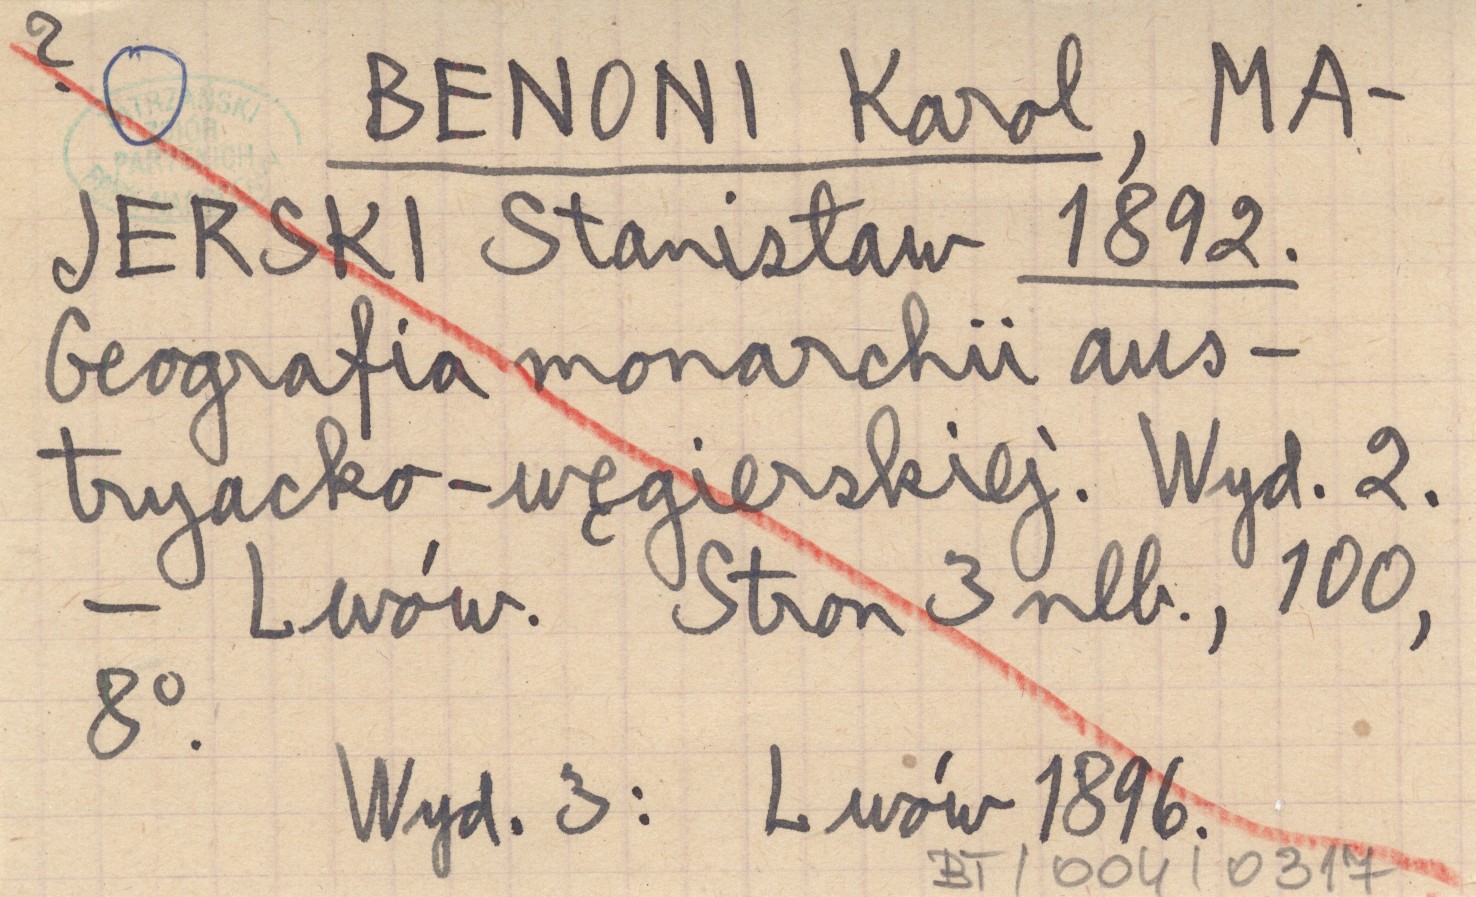 ?
BENONI Karol, MA-
JERSKI Stanisław 1892.
Geografia monarchii aus-
tryjacko-węgierskiej. Wyd. 2.
— Lwów. Stron 3 nlb., 100,
8°.
Wyd. 3: Lwów 1896.
BT/004/0317